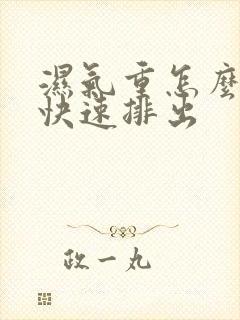 濕氣重怎麼
快速排出
政一丸